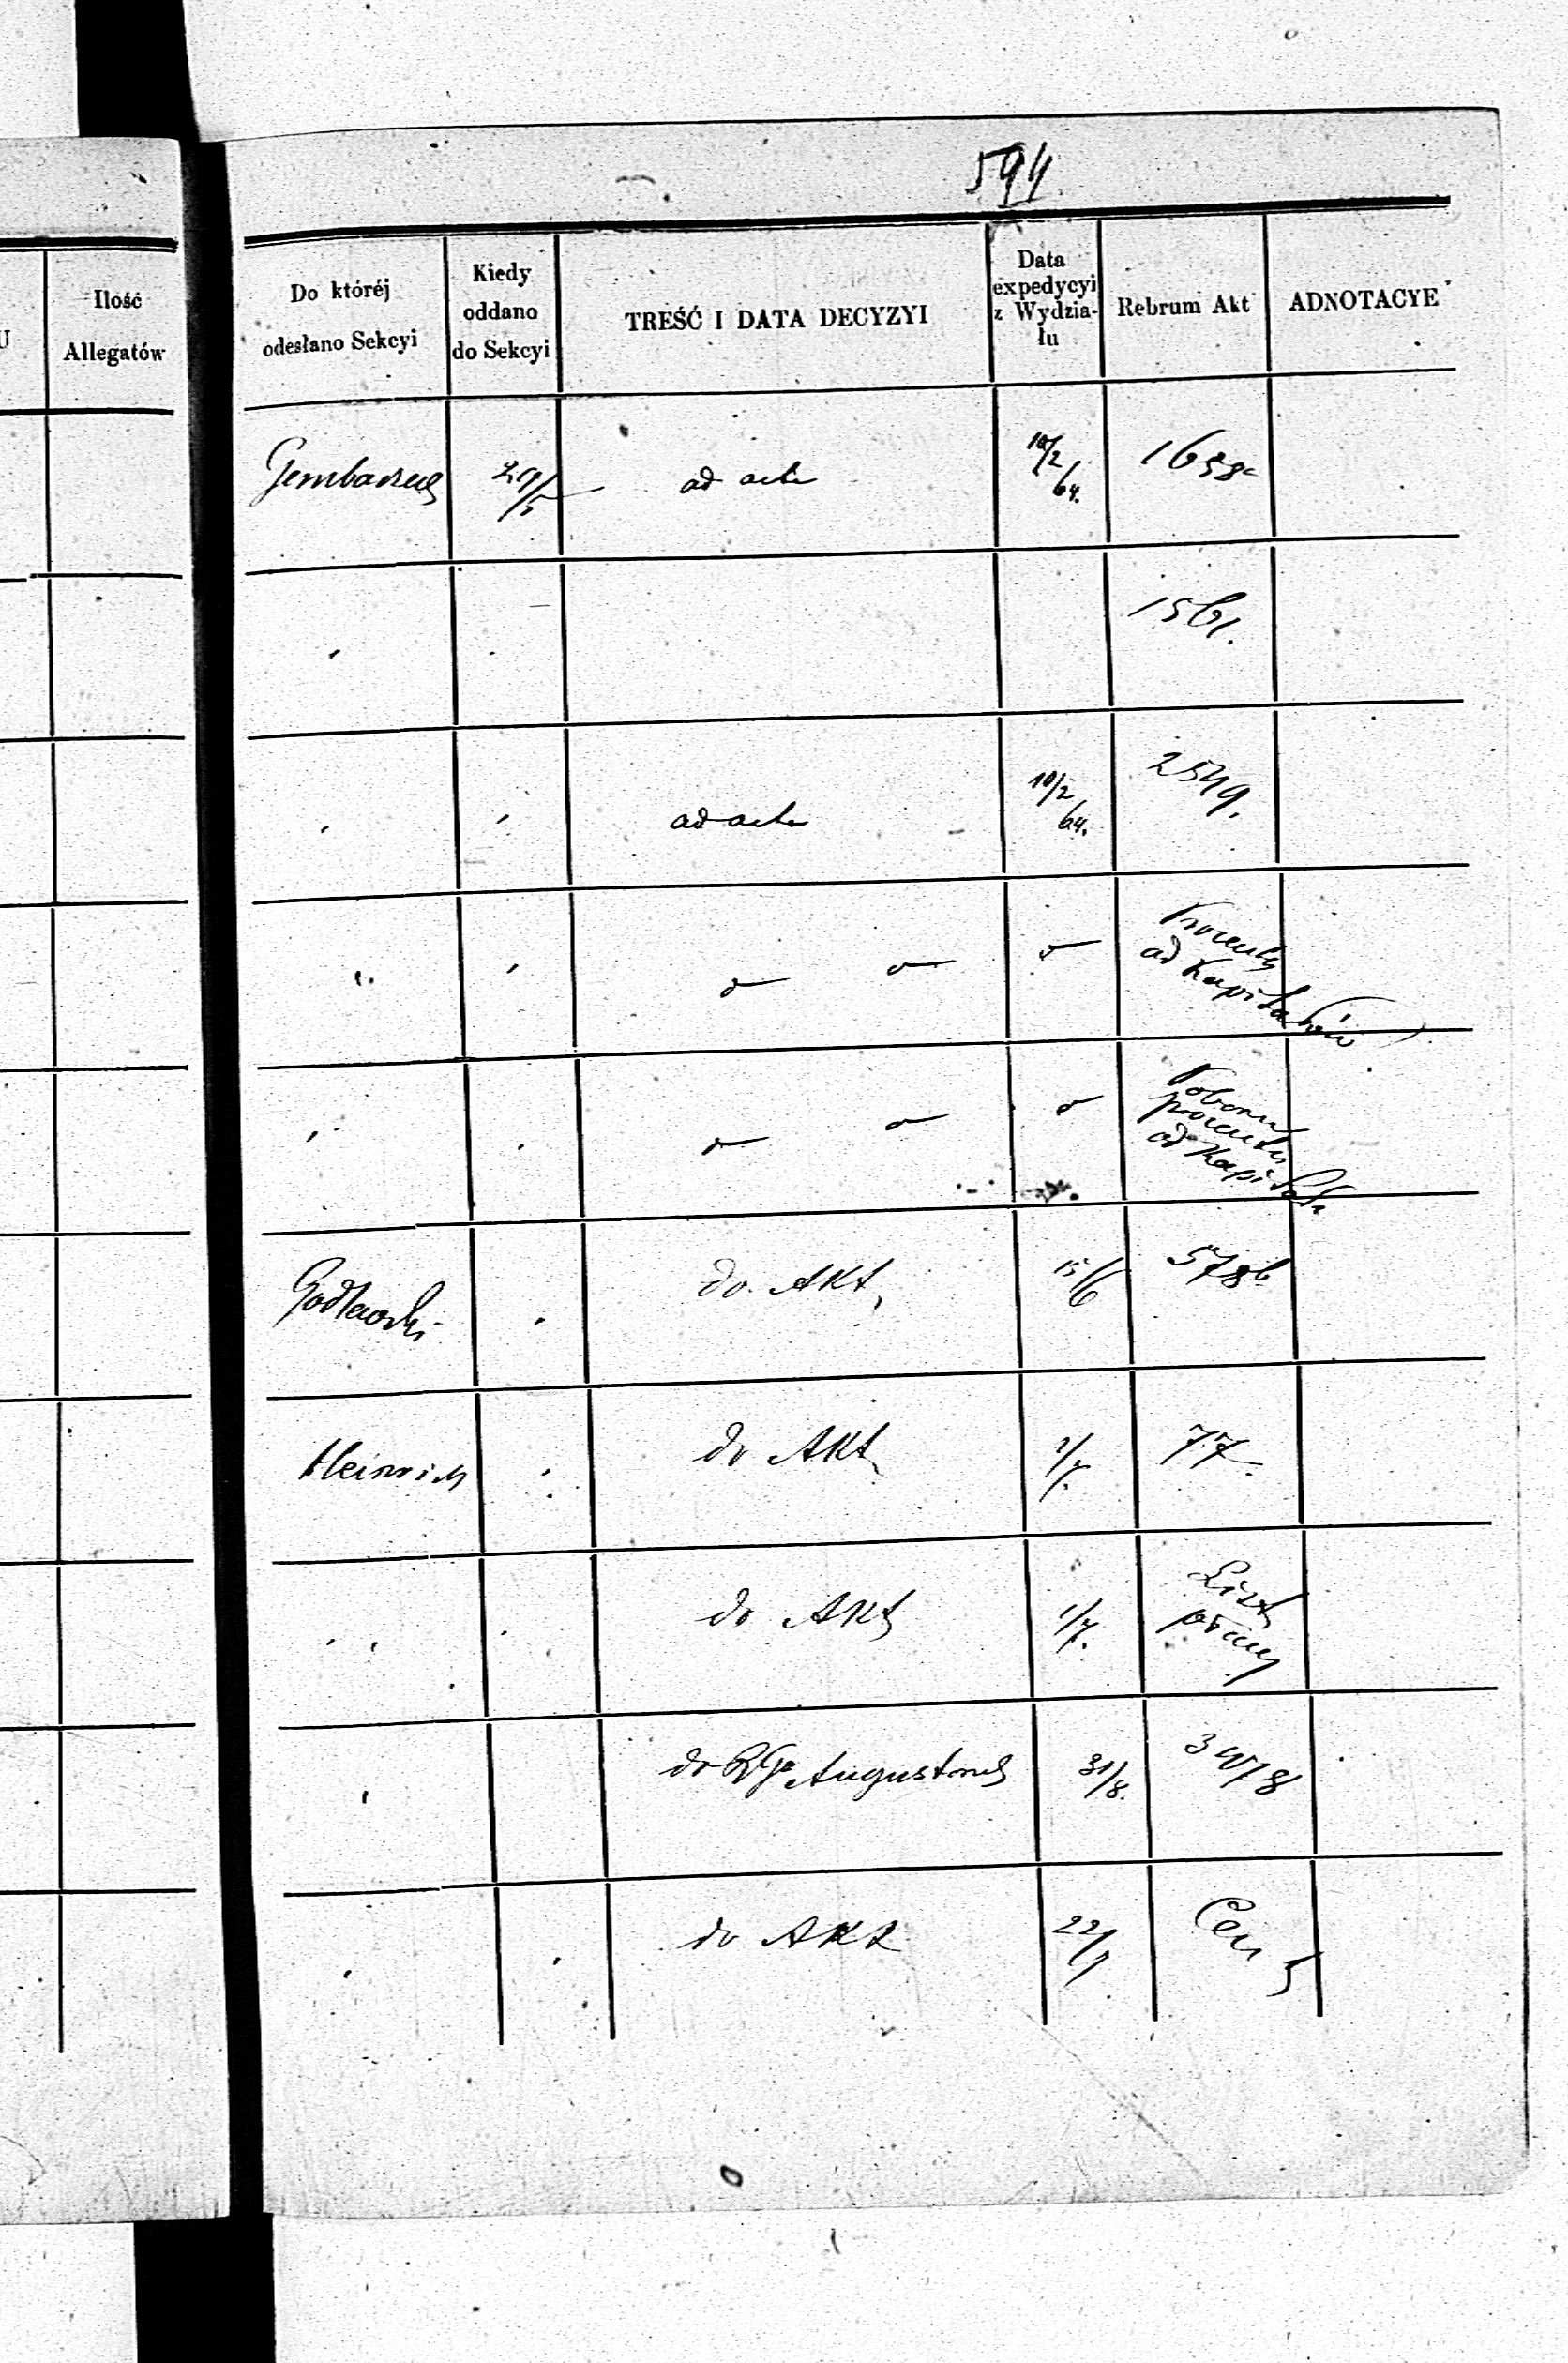 594
U
Ilość
Allegatów
Do któréj
odesłano Sekcyi
Kiedy
oddano
do Sekcyi
TREŚĆ I DATA DECYZYI
Data
expedycyi
z Wydzia-
łu
Rebrum Akt
ADNOTACYE
29/5
ad acta
10/2
64.
1561.
ad acta
10/2
64.
2549.
Procenty
od Kapitałów
Poboru
procentu
od Kapitał.
Godlewski
do Akt,
15/6
578b
Heinrich
do Akt
1/7.
77.
do Akt
1/7.
List
do RGo Augustows
31/8.
3478
do Akt
22/7